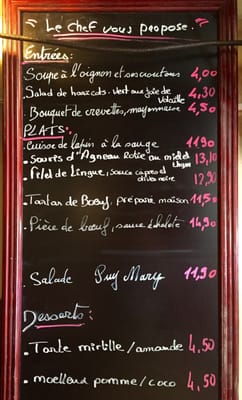 Le chef vous propose.
Entrées:
Soupe à l'oignon et ses croutons 4,00
Salad de haricots vert aux foie de 4,30
Volaille
Bouquet de crevettes, mayonnaise 4,50
PLATS:
Cuisse de lapin à la sauge 11,90
Souris d'Agneau Rotie au miel 13,10
thym
Filet de Lingue, sauce capres et 12,90
olives noire
Tartare de Boeuf, préparé maison 11,50
Pièce de boeuf, sauce échalote 14,90
Salade Puy Mary 11,90
Desserts:
Tarte mirtille/amande 4,50
moelleux pomme/coco 4,50